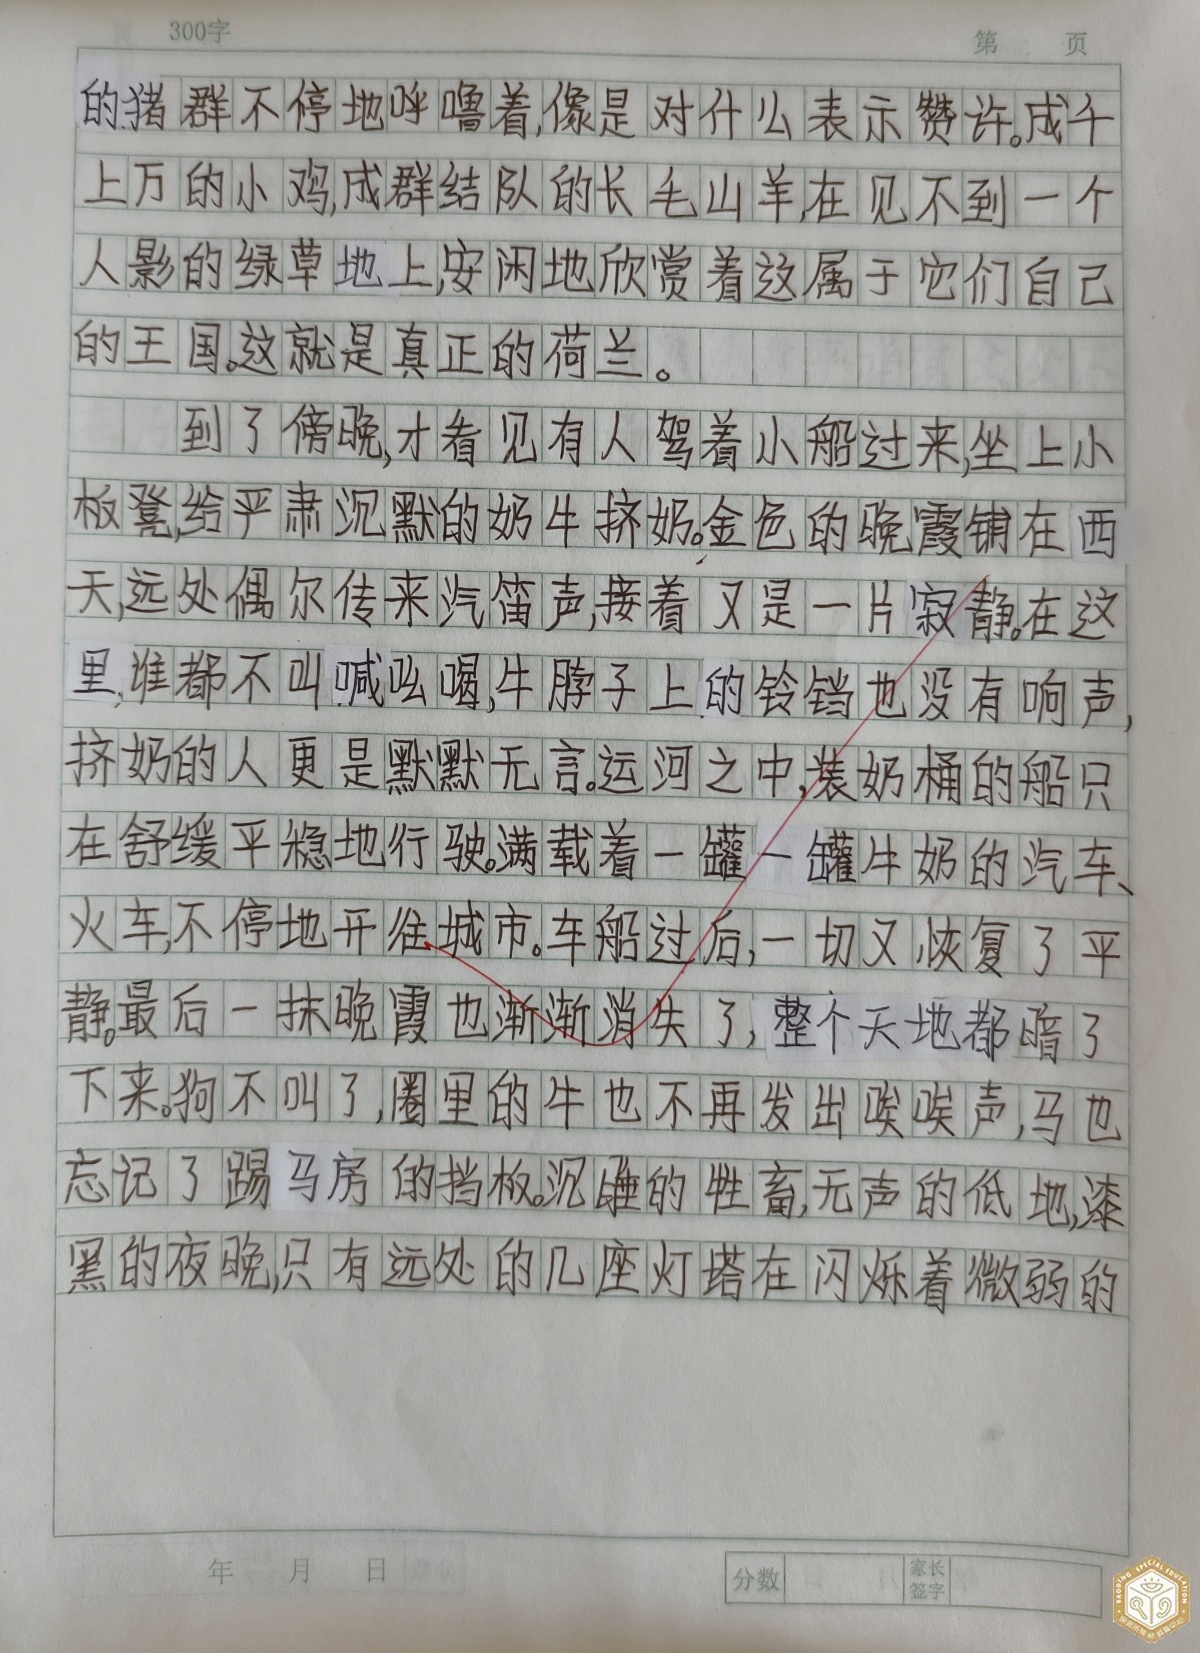 300字
第 页
的猪群不停地呼噜着,像是对什么表示赞许。成千
上万的小鸡,成群结队的长毛山羊,在见不到一个
人影的绿草地上,安闲地欣赏着这属于它们自己
的王国。这就是真正的荷兰。
到了傍晚,才看见有人驾着小船过来,坐上小
板凳,给严肃沉默的奶牛挤奶。金色的晚霞铺在西
天,远处偶尔传来汽笛声,接着又是一片寂静。在这
里,谁都不叫喊吆喝,牛脖子上的铃铛也没有响声,
挤奶的人更是默默无言。运河之中,装奶桶的船只
在舒缓平稳地行驶。满载着一罐一罐牛奶的汽车、
火车,不停地开往城市。车船过后,一切又恢复了平
静。最后一抹晚霞也渐渐消失了,整个天地都暗了
下来。狗不叫了,圈里的牛也不再发出哞哞声,马也
忘记了踢马房的挡板。沉睡的牲畜,无声的低地,漆
黑的夜晚,只有远处的几座灯塔在闪烁着微弱的
年 月 日
分数
家长
签字
BAODING SPECIAL EDUCATION